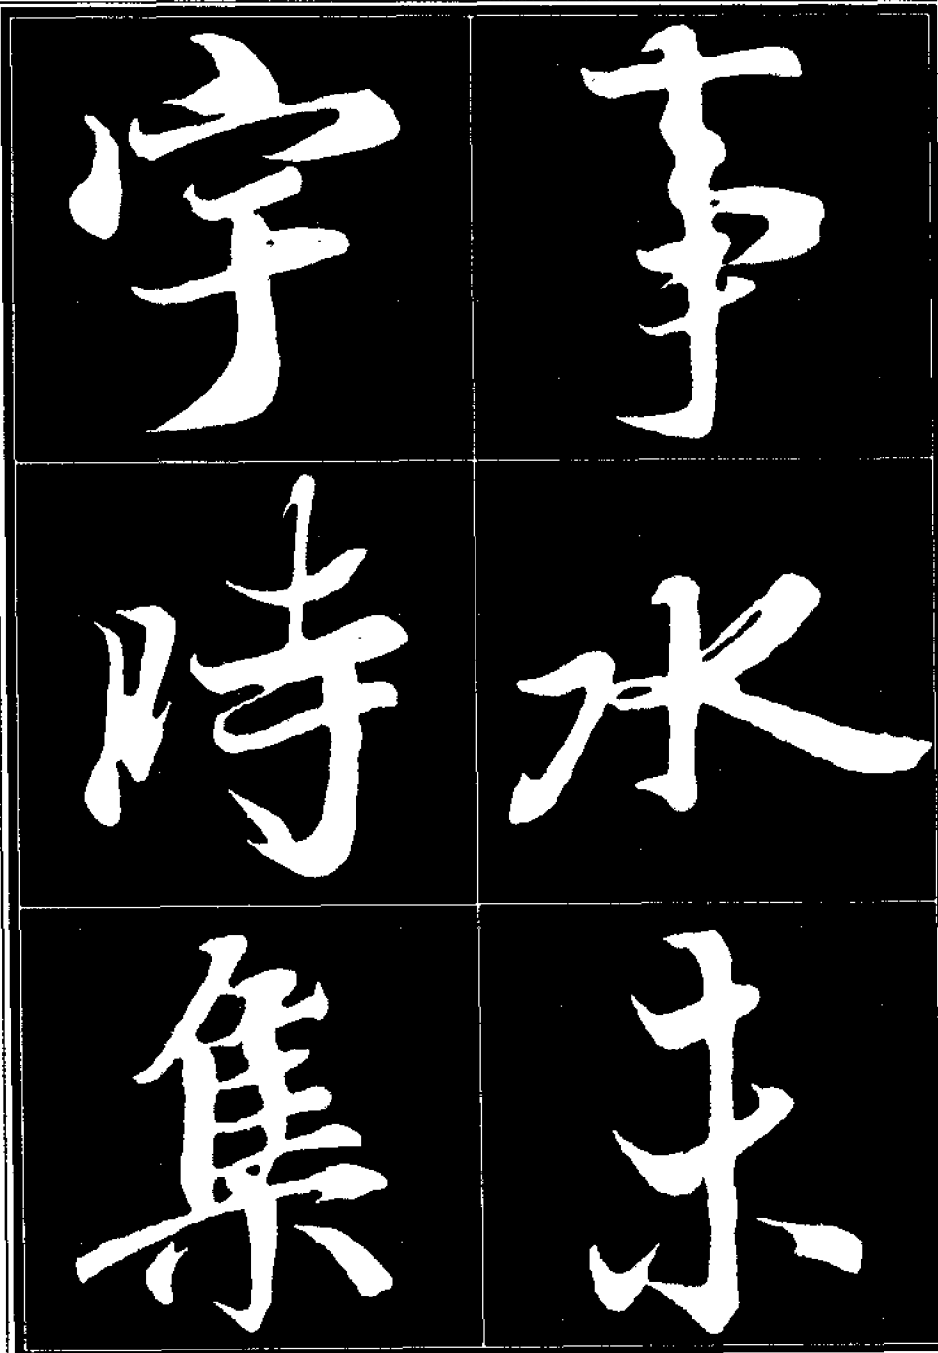 事水未
宇時集